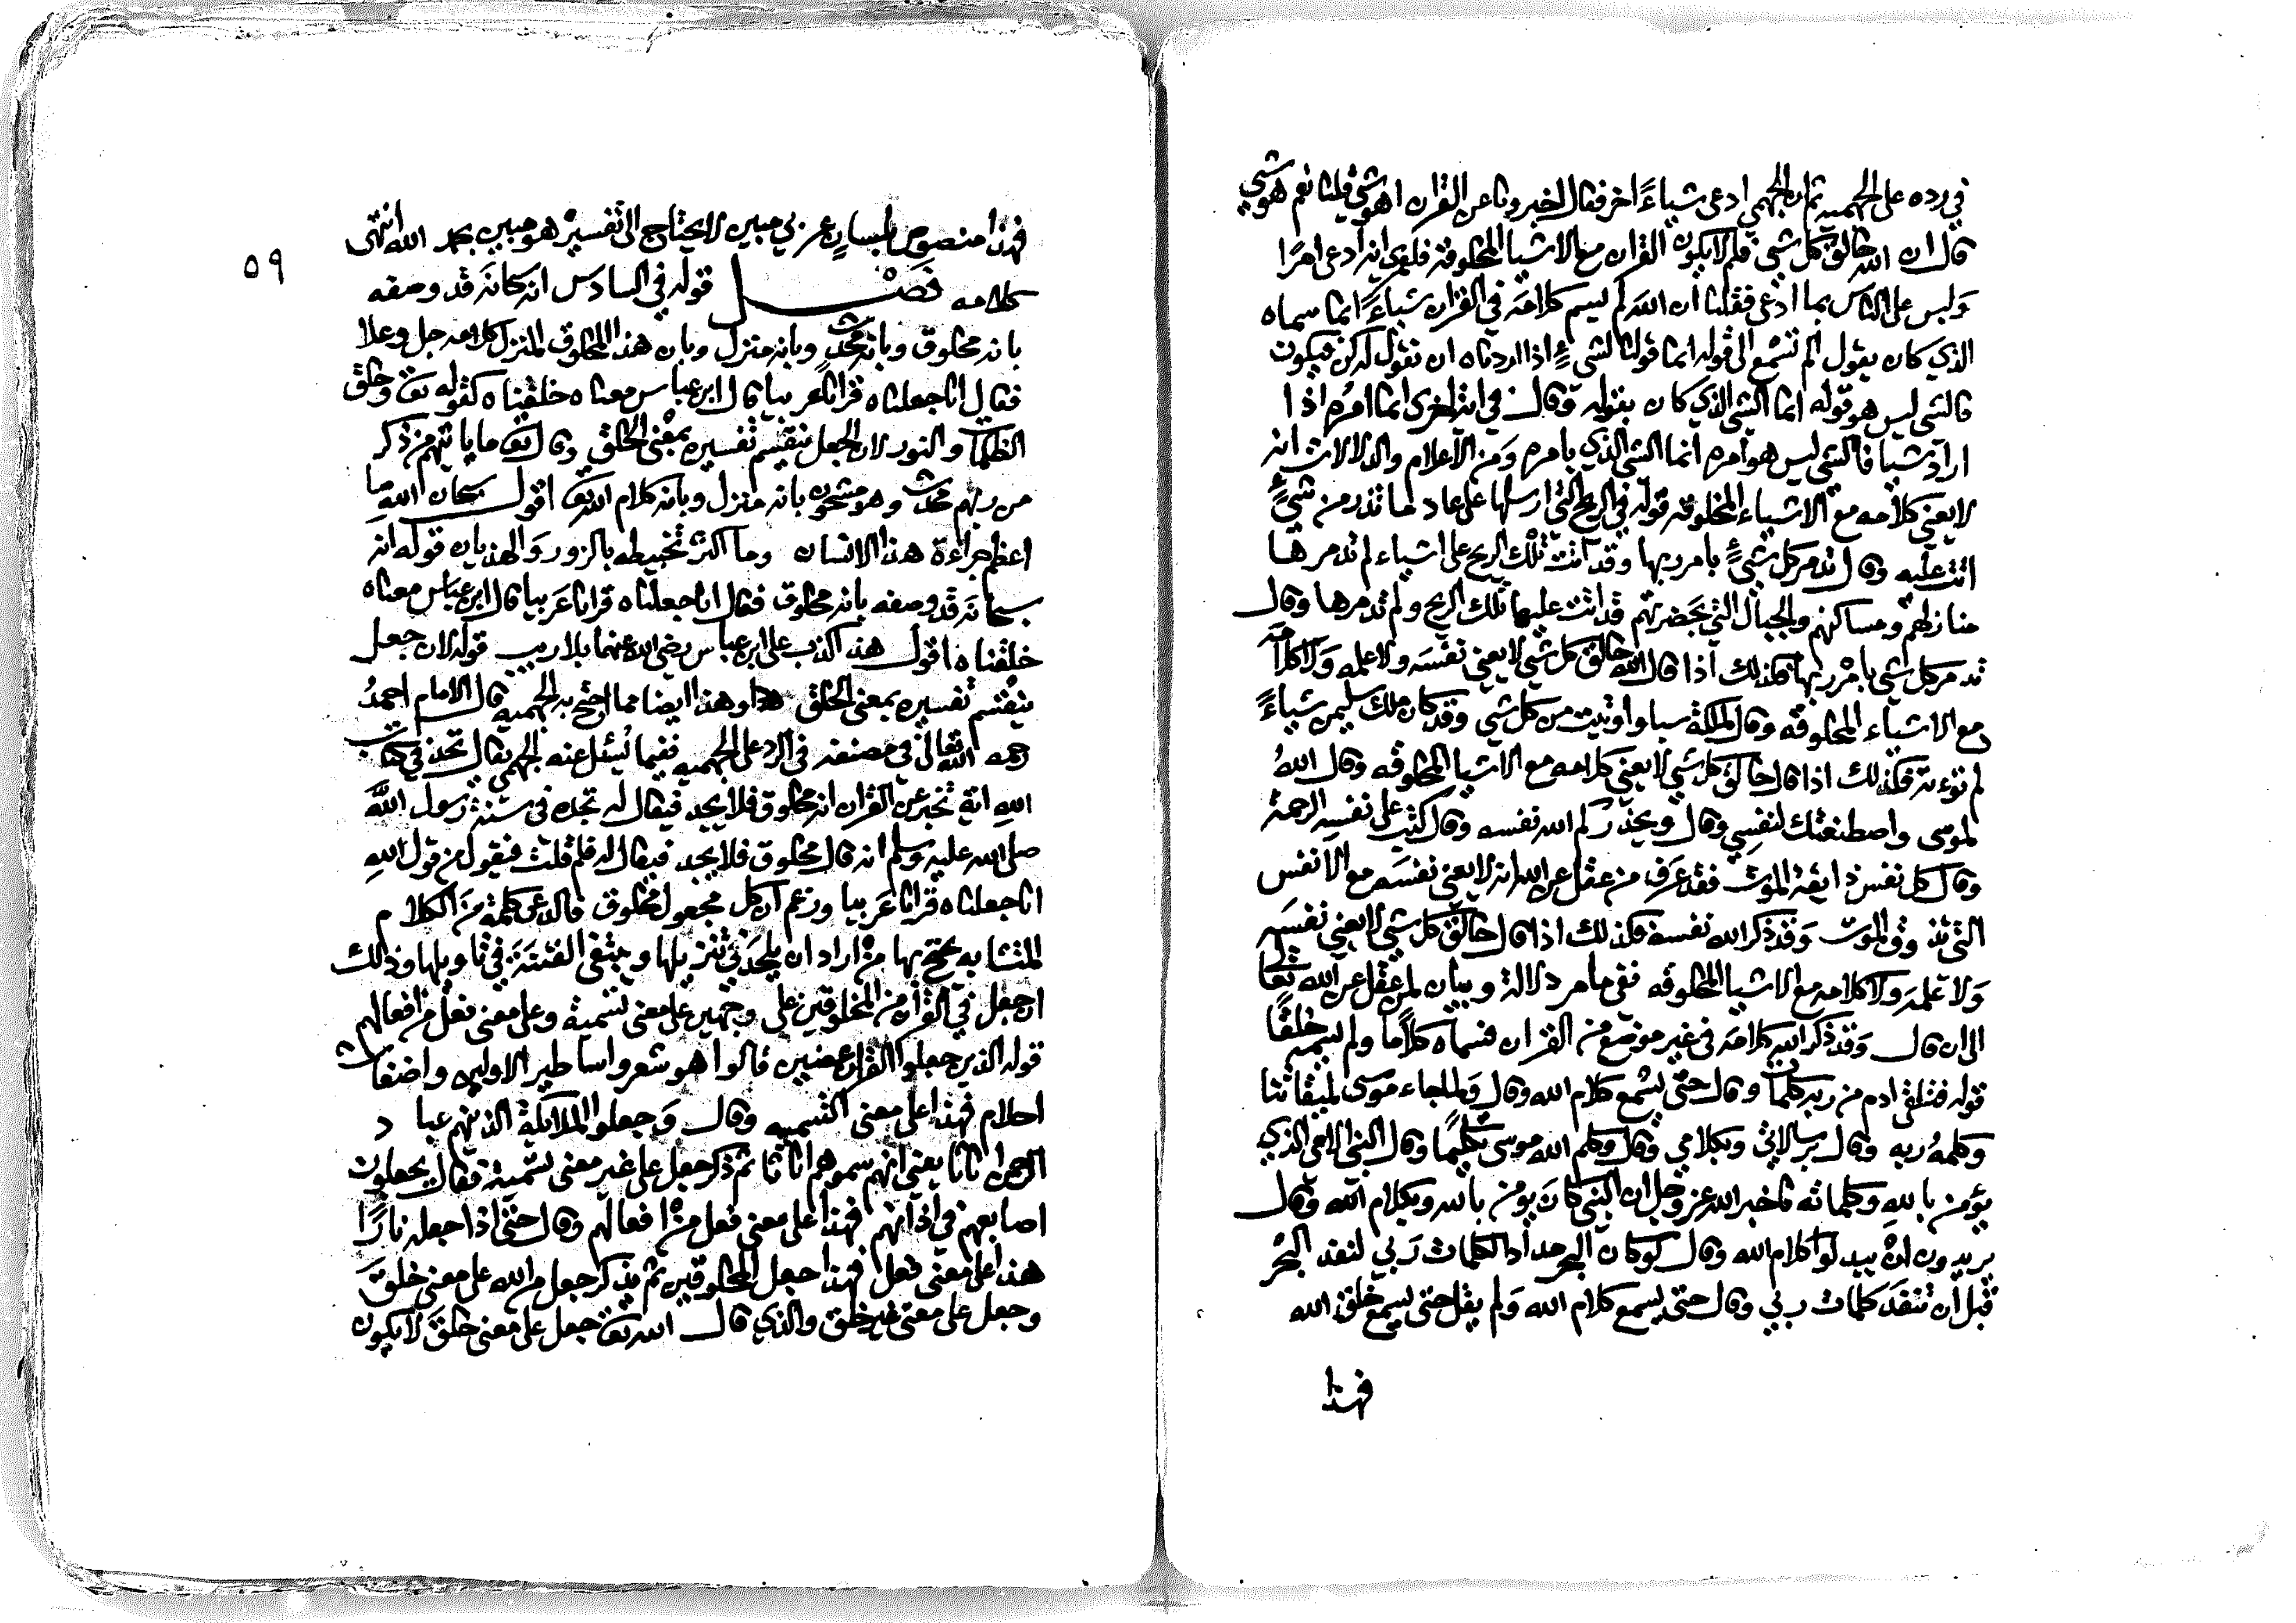 في رده على الجهمية ثم ان الجهمي ادعى شياءً اخر فقال اخبرونا عن القران اهو شي قلنا نعم هو شي
قال ان الله خالق كل شي فلم لا يكون القران مع الاشيا المخلوقة فلعمري انه ادعى امرًا
ولبس على الناس بما ادعى فقلنا ان الله لم يسم كلامه في القران شياءً انما سماه
الذي كان بقوله الم تسمع الى قوله انما قولنا لشيءٍ اذا اردناه ان نقول له كن فيكون
فالشي ليس هو قوله انما الشي الذي كان بقوله وقال في اية اخرى انما امره اذا
اراد شيا فالشي ليس هو امره انما الشي الذي بامره ومن الاعلام والدلالات انه
لا يعني كلامه مع الاشياء المخلوقة قوله في الريح التي ارسلها على عاد ما تذر من شيءٍ
اتت عليه وقال تدمر كل شيءٍ بامر ربها وقد اتت تلك الريح على اشياء لم تدمرها
منازلهم ومساكنهم والجبال التي بحضرتهم قد اتت عليها تلك الريح ولم تدمرها وقال
تدمر كل شي بامر ربها فكذلك اذا قال الله خالق كل شي لا يعني نفسه ولا علمه ولا كلامه
مع الاشياء المخلوقة وقال لملكة سبا واوتيت من كل شي وقد كان ملك سليمن شياءً
لم تؤته فكذلك اذا قال خالق كل شي لا يعني كلامه مع الاشيا المخلوقه وقال اللهُ
لموسى واصطنعتك لنفسي وقال ويحذركم الله نفسه وقال كتب على نفسه الرحمة
وقال كل نفس ذايقة الموت فقد عرف من عقل عن الله انه لا يعني نفسه مع الانفس
التي تذوق الموت وقد ذكر الله نفسه فكذلك اذا قال خالق كل شي لا يعني نفسه
ولا علمه ولا كلامه مع الاشيا المخلوقه ففي ما مر دلالة وبيان لمن عقل عن الله تعا
الى ان قال وقد ذكر الله كلامه في غير موضع من القران فسماه كلاما ولم يسمه خلقًا
قوله فتلقى ادم من ربه كلمات وقال حتى يسمع كلام الله وقال ولما جاء موسى لميقاتنا
وكلمهُ ربه وقال برسالاتي وبكلامي وقال وكلم الله موسى تكليمًا وقال النبي الامي الذي
يؤمن باللهِ وكلماته فاخبر الله عز وجل ان النبي كان يؤمن بالله وبكلام الله وقال
يريدون ان يبدلوا كلام الله وقال لو كان البحر مدادا لكلمات ربي لنفد البحر
قبل ان تنفد كلمات ربي وقال حتى يسمع كلام الله ولم يقل حتى يسمع خلق الله
فهذا
٥٩
فهذا منصوص بلسانٍ عربي مبين لا يحتاج الى تفسيرٍ هو مبين بحمد الله انتهى
كلامه فصل قوله في السادس انه سبحانه قد وصفه
بانه مخلوق وبانه محدث وبانه منزل وبان هذا المخلوق المنزل كلامه جل وعلا
فقال انا جعلناه قرانا عربيا قال ابن عباس معناه خلقناه كقوله تع وخلق
الظلمات والنور لان الجعل ينقسم تفسيره بمعنى الخلق وقال تع ما ياتيهم من ذكر
من ربهم محدث وهو مشحون بانه منزل وبانه كلام الله تع اقول سبحان الله ما
اعظم جراءة هذا الانسان وما اكثر تخبيطه بالزور والهذيان قوله انه
سبحانه قد وصفه بانه مخلوق فقال انا جعلناه قرانا عربيا قال ابن عباس معناه
خلقناه اقول هذا كذب على ابن عباس رضي الله عنهما بلا ريب قوله لان جعل
ينقسم تفسيره بمعنى الخلق وهذا ايضا مما احتج به الجهمية قال الامام احمدُ
رحمه الله تعالى في مصنفه في الرد على الجهميه ففيما يُسئل عنه الجهمي يقال تجد في كتاب
اللهِ اية تخبر عن القران انه مخلوق فلا يجد فيقال له تجده في سنة رسول اللهِ
صلى الله عليه وسلم انه قال مخلوق فلا يجد فيقال له فلم قلت فيقول من قول اللهِ
انا جعلناه قرانا عربيا وزعم ان كل مجعول مخلوق فادعى كلمة من الكلام
المتشابه يحتج بها من اراد ان يلحد في تنزيلها ويبتغي الفتنة في تاويلها وذلك
ان جعل في القران من المخلوقين على وجهين على معنى تسمية وعلى معنى فعل من افعالهم
قوله الذين جعلوا القران عضين قالوا هو شعر واساطير الاولين واضغاث
احلام فهذا على معنى التسميه وقال وجعلوا الملائكة الذين هم عباد
الرحمن اناثا يعني انهم سموهم اناثا ثم ذكر جعل على غير معنى تسمية فقال يجعلون
اصابعهم في اذانهم فهذا على معنى فعل من افعالهم وقال حتى اذا جعله نارًا
هذا على معنى فعل فهذا جعل المخلوقين ثم يذكر جعل من الله على معنى خلق
وجعل على معنى غير خلق والذي قال الله تع جعل على معنى خلق لا يكون